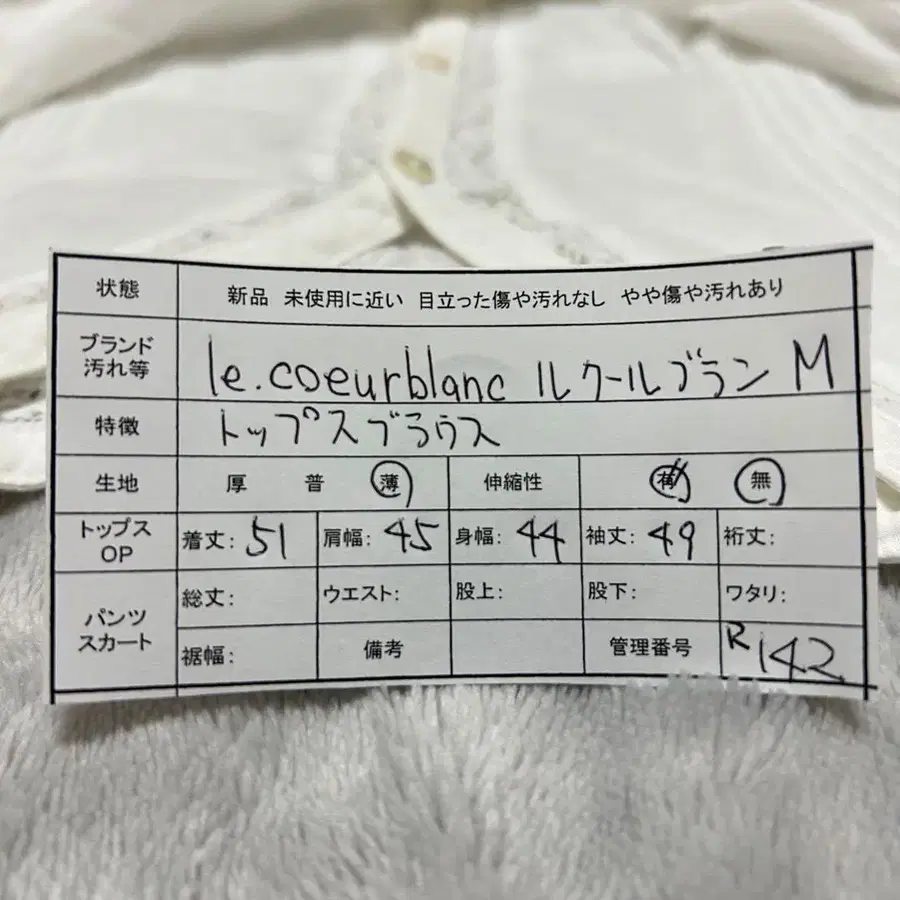 状態 新品 未使用に近い 目立った傷や汚れなし やや傷や汚れあり
ブランド 汚れ等 le.coeurblanc ルクールブラン M
特徴 トップスブラウス
生地 厚 普 薄 伸縮性 有 無
トップス OP 着丈: 51 肩幅: 45 身幅: 44 袖丈: 49 裄丈:
パンツ スカート 総丈: ウエスト: 股上: 股下: ワタリ:
裾幅: 備考 管理番号 R142